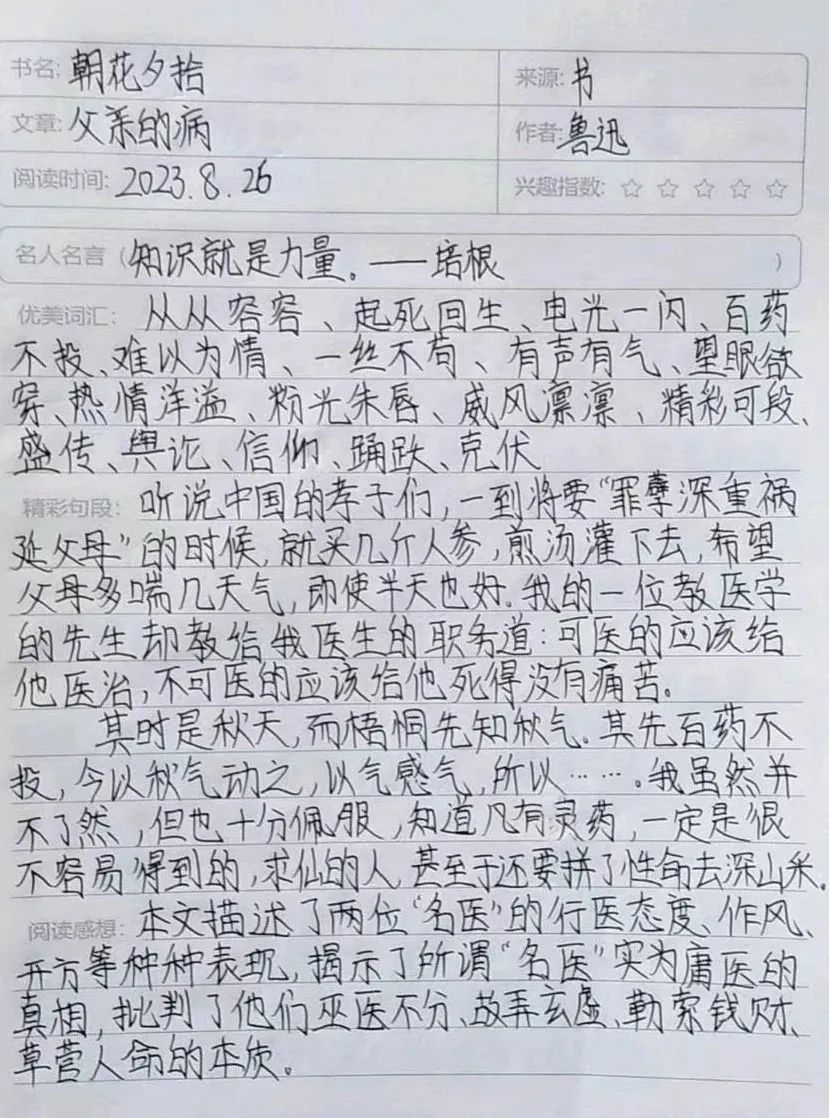 书名: 朝花夕拾 来源: 书
文章: 父亲的病 作者: 鲁迅
阅读时间: 2023.8.26 兴趣指数: ☆ ☆ ☆ ☆ ☆
名人名言（知识就是力量。——培根 ）
优美词汇: 从从容容、起死回生、电光一闪、百药
不投、难以为情、一丝不苟、有声有气、望眼欲
穿、热情洋溢、粉光朱唇、威风凛凛、精彩可段、
盛传、舆论、信仰、踊跃、克伏
精彩句段: 听说中国的孝子们,一到将要“罪孽深重祸
延父母”的时候,就买几斤人参,煎汤灌下去,希望
父母多喘几天气,即使半天也好.我的一位教医学
的先生却教给我医生的职务道:可医的应该给
他医治,不可医的应该给他死得没有痛苦。
其时是秋天,而梧桐先知秋气.其先百药不
投,今以秋气动之,以气感气,所以……。我虽然并
不了然,但也十分佩服,知道凡有灵药,一定是很
不容易得到的,求仙的人,甚至于还要拼了性命去深山采.
阅读感想: 本文描述了两位“名医”的行医态度、作风、
开方等种种表现,揭示了所谓“名医”实为庸医的
真相,批判了他们巫医不分、故弄玄虚、勒索钱财、
草菅人命的本质。